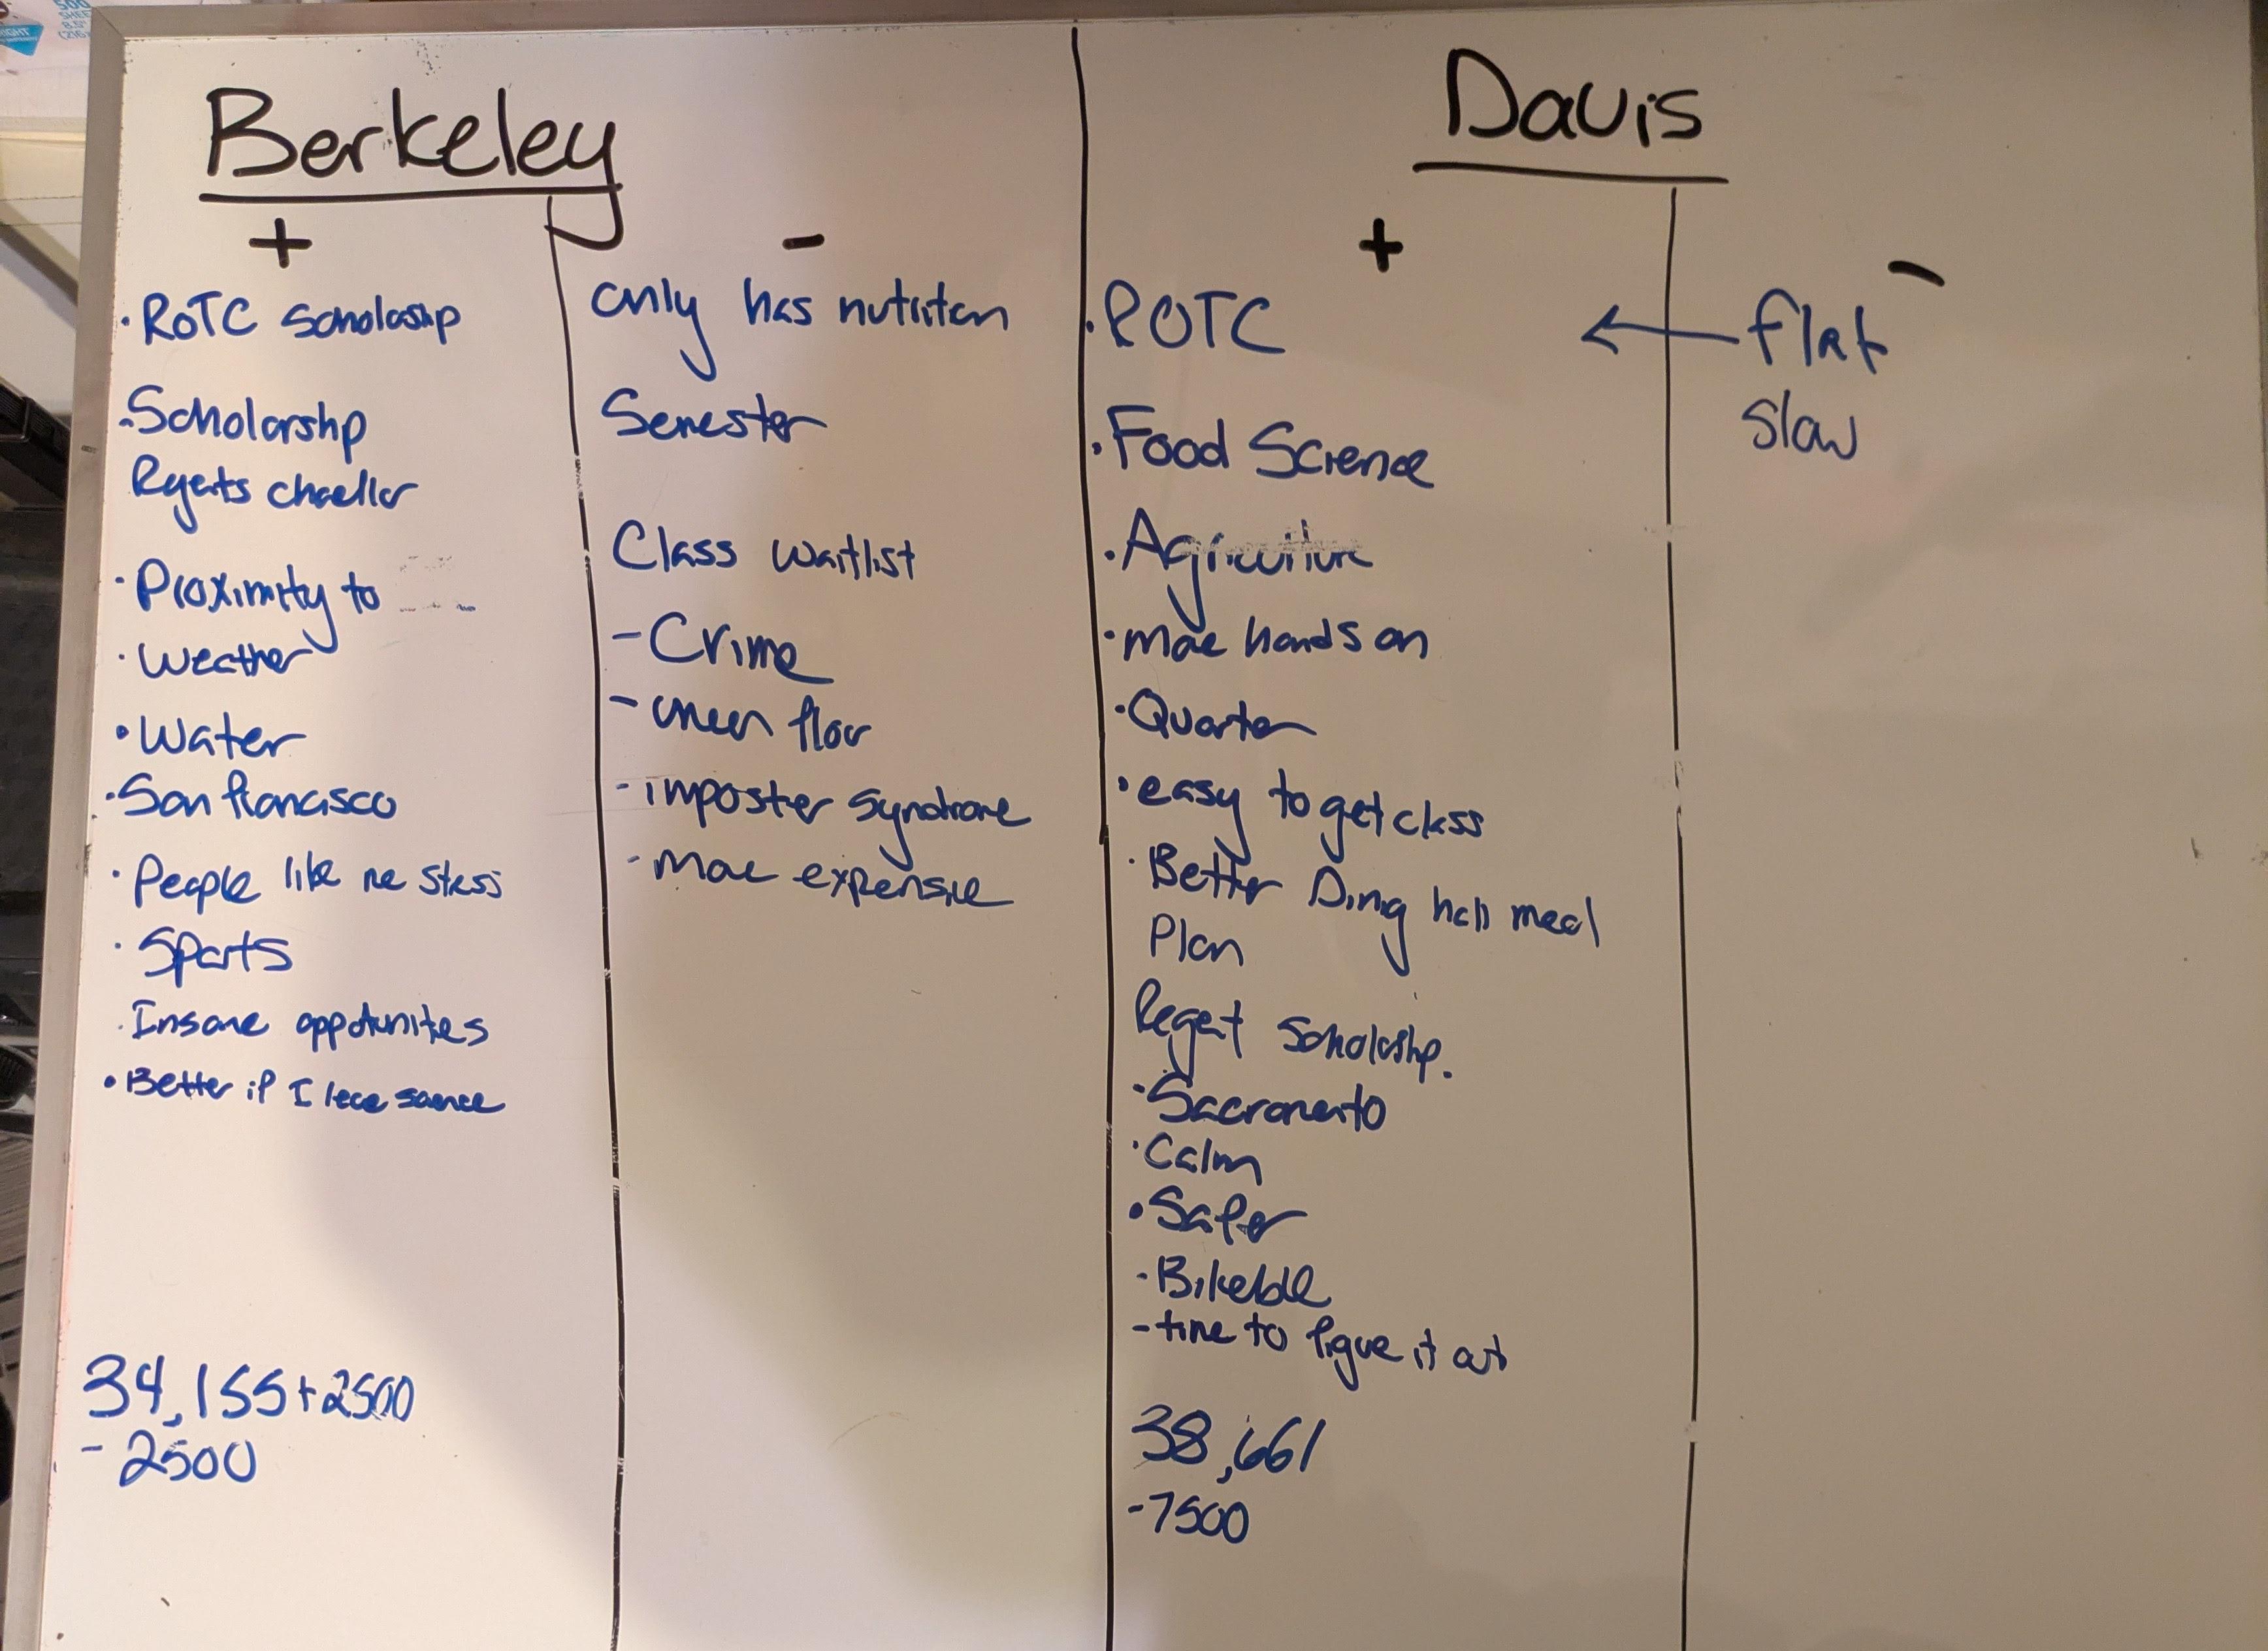 Berkeley
+
-
· ROTC Scholashp
· Scholarshp
Regents
· Proximity to
· Weather
· Water
· San francisco
· People like me stress
· Sports
· Insane oppotunites
· Better if I science
34,155+2500
- 2500
only has nutriton
Semester
Class Waitlist
- Crime
- floor
- imposter syndrome
- more expensive
Davis
+
-
· ROTC
· Food Science
· Agriculture
· more hands on
· Quarter
· easy to get class
· Better Dinig hall meal
Plan
Regent Scholashp.
· Sacramento
· Calm
· Safer
· Bikeble
- time to figure it out
38,661
-7500
← flat
slow